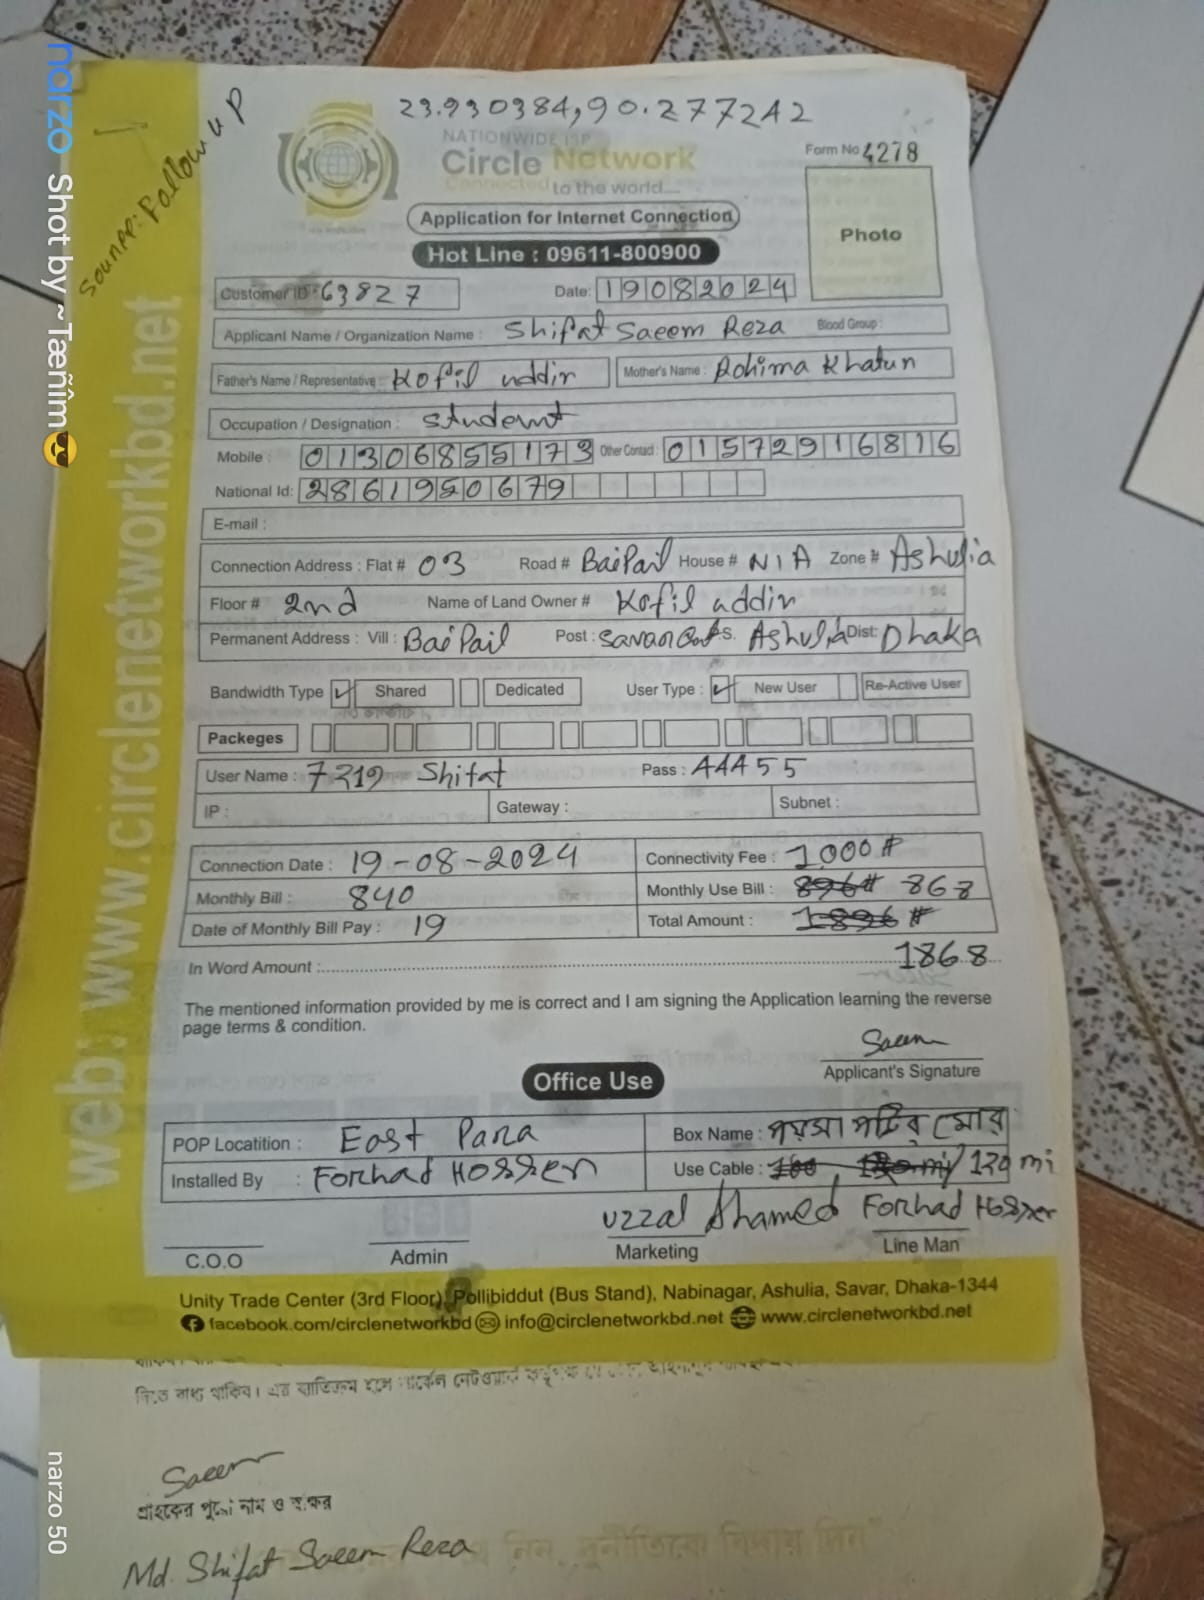 23.930384,90.277242
Sounpp: Follow up
NATIONWIDE ISP
Circle Network
Connected to the world....
Form No 4278
Application for Internet Connection
Hot Line : 09611-800900
Photo
Customer ID : 63827
Date: 19082024
Applicant Name / Organization Name : Shifat Saeem Reza Blood Group :
Father's Name / Representative : Kofil uddin Mother's Name : Rohima Khatun
Occupation / Designation : Student
Mobile : 01306855173 Other Contact : 01572916816
National Id: 2861950679
E-mail :
Connection Address : Flat # 03 Road # BaiPail House # N/A Zone # Ashulia
Floor # 2nd Name of Land Owner # Kofil uddin
Permanent Address : Vill : BaiPail Post : Savar P.s. Ashulia Dist: Dhaka
Bandwidth Type Shared Dedicated User Type : New User Re-Active User
Packeges
User Name : 7219 Shifat Pass : 44455
IP : Gateway : Subnet :
Connection Date : 19-08-2024 Connectivity Fee : 1000#
Monthly Bill : 840 Monthly Use Bill : 896# 868
Date of Monthly Bill Pay : 19 Total Amount : 1896#
In Word Amount : 1868
The mentioned information provided by me is correct and I am signing the Application learning the reverse
page terms & condition.
Saeem
Applicant's Signature
Office Use
POP Locatition : East Para Box Name : পয়সা পট্টির মোর
Installed By : Forhad Hossen Use Cable : 120 mi
Uzzal Ahamed Forhad Hossen
C.O.O Admin Marketing Line Man
Unity Trade Center (3rd Floor), Pollibiddut (Bus Stand), Nabinagar, Ashulia, Savar, Dhaka-1344
facebook.com/circlenetworkbd info@circlenetworkbd.net www.circlenetworkbd.net
web: www.circlenetworkbd.net
Saeem
গ্রাহকের পুরো নাম ও স্বাক্ষর
Md. Shifat Saeem Reza
narzo Shot by ~Tæñîm😎
narzo 50